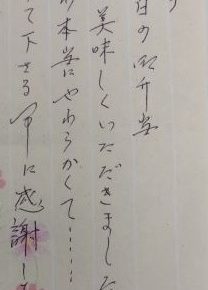 日の御弁当
美味しくいただきました
本当にやわらかくて……
て下さる事に感謝し